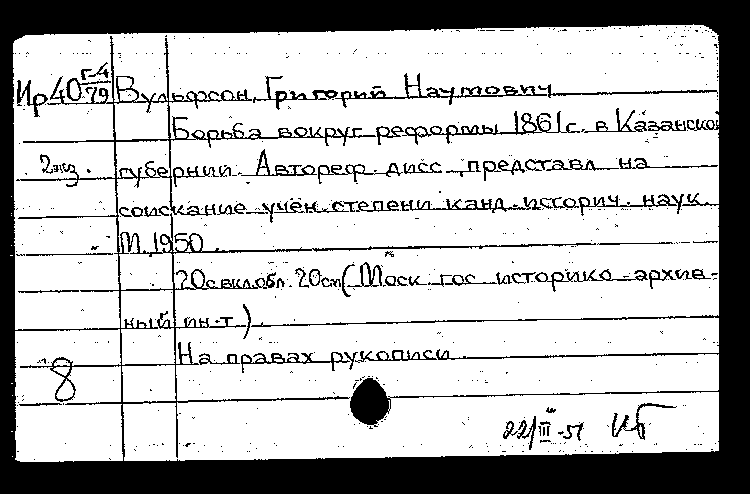 Ир40 Г-4/79 Вульфсон, Григорий Наумович
Борьба вокруг реформы 1861г. в Казанской
2экз. губернии. Автореф. дисс., представл на
соискание учён. степени канд. историч. наук.
М. 1950.
20с вкл.обл. 20см (Моск. гос. историко-архив-
ный ин-т).
На правах рукописи
8
22/III-51 ИБ